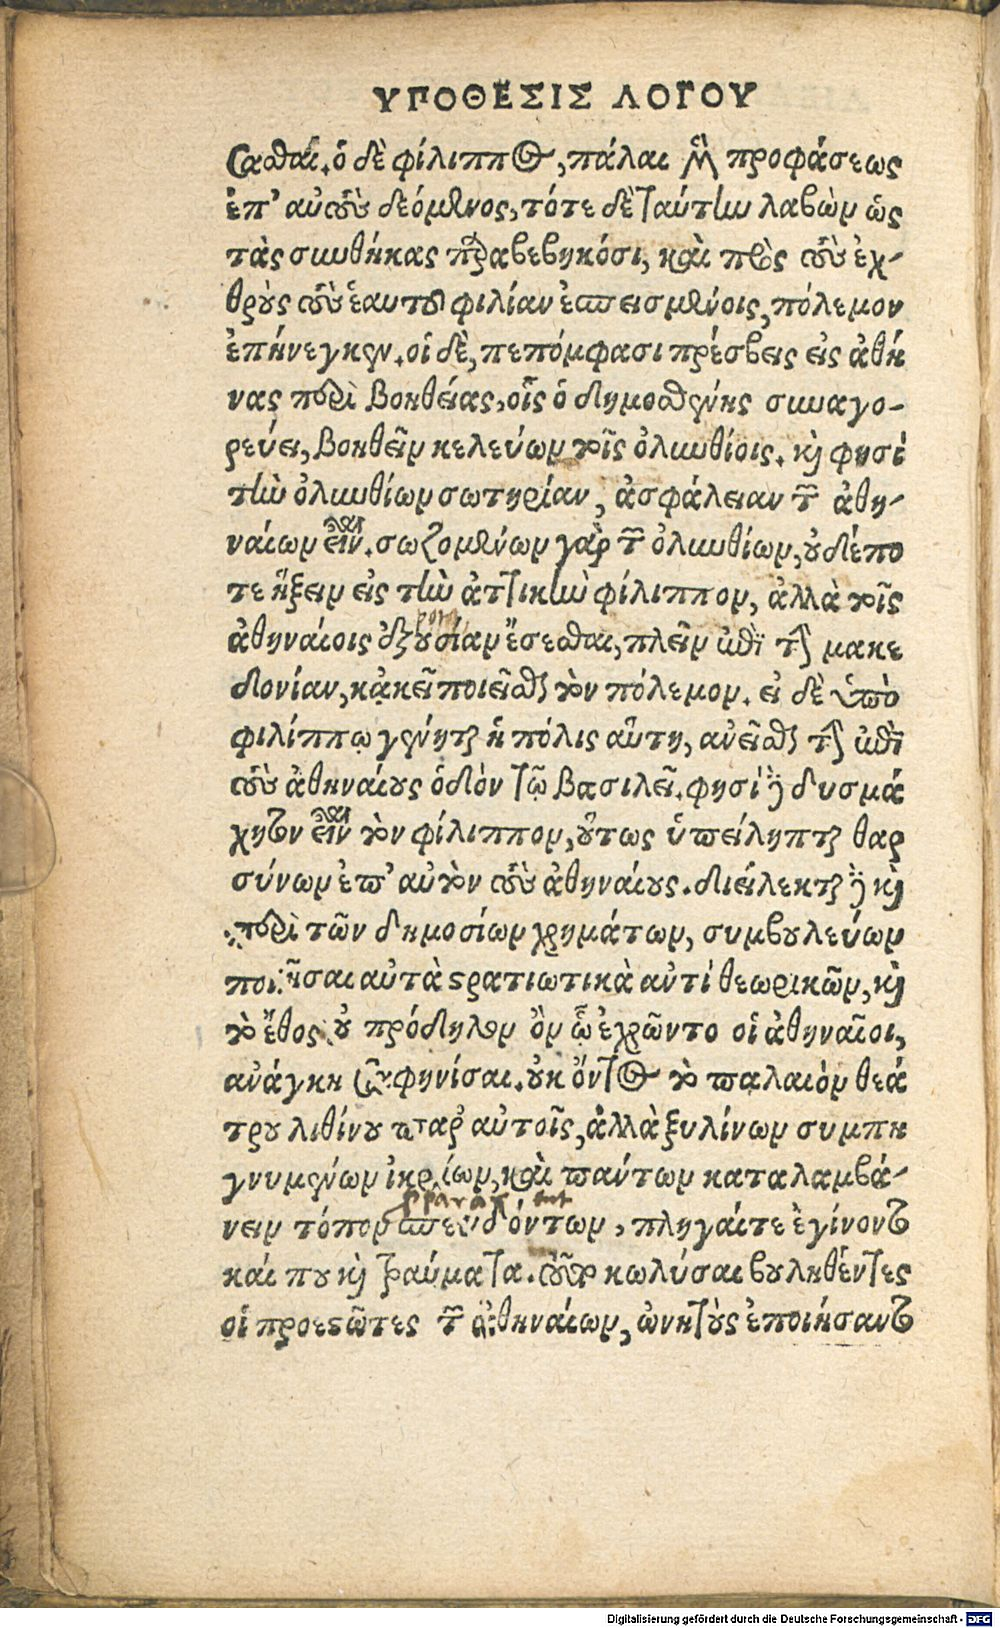 ΥΠΟΘΕΣΙΣ ΛΟΓΟΥ
σασθαι. ὁ δὲ φίλιππος, πάλαι μὲν προφάσεως
ἐπ' αὐτοὺς δεόμενος, τότε δὲ ταύτην λαβὼν ὡς
τὰς συνθήκας παραβεβηκόσι, καὶ πρὸς τοὺς ἐχ-
θροὺς τοὺς ἑαυτοῦ φιλίαν ἐσπεισμένοις, πόλεμον
ἐπήνεγκεν. οἱ δὲ, πεπόμφασι πρέσβεις εἰς ἀθή
νας περὶ βοηθείας, οἷς ὁ δημοσθένης συναγο-
ρεύει, βοηθεῖν κελεύων τοῖς ὀλυνθίοις. καὶ φησὶ
τὴν ὀλυνθίων σωτηρίαν, ἀσφάλειαν τῶν ἀθη-
ναίων εἶναι. σωζομένων γὰρ τῶν ὀλυνθίων, οὐδέπο
τε ἥξειν εἰς τὴν ἀττικὴν φίλιππον, ἀλλὰ τοῖς
ἀθηναίοις ἐξουσίαν ἔσεσθαι, πλεῖν ἐπὶ τὴν μακε
δονίαν, κἀκεῖ ποιεῖσθαι τὸν πόλεμον. εἰ δὲ ὑπὸ
φιλίππῳ γένηται ἡ πόλις αὕτη, ἀνεῖσθαι τὴν ἐπὶ
τοὺς ἀθηναίους ὁδὸν τῷ βασιλεῖ. φησὶ δὲ δυσμά
χητον εἶναι τὸν φίλιππον, οὕτως ὑπείληπται θαρ
σύνων ἐπ' αὐτὸν τοὺς ἀθηναίους. διείλεκται δὲ καὶ
περὶ τῶν δημοσίων χρημάτων, συμβουλεύων
ποιῆσαι αὐτὰ στρατιωτικὰ ἀντὶ θεωρικῶν, καὶ
τὸ ἔθος οὐ πρόδηλον ὂν ᾧ ἐχρῶντο οἱ ἀθηναῖοι,
ἀνάγκη σαφηνίσαι. οὐκ ὄντος τὸ παλαιὸν θεά
τρου λιθίνου παρ' αὐτοῖς, ἀλλὰ ξυλίνων συμπη
γνυμένων ἰκρίων, καὶ πάντων καταλαμβά-
νειν τόπον σπευδόντων, πληγαί τε ἐγίνοντο
καί που καὶ τραύματα. τοῦτο κωλύσαι βουληθέντες
οἱ προεστῶτες τῶν ἀθηναίων, ὠνητοὺς ἐποιήσαντο
Digitalisierung gefördert durch die Deutsche Forschungsgemeinschaft - DFG